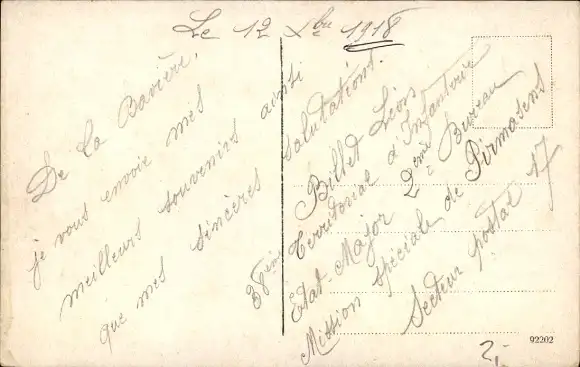 Le 12 Xbre 1918
De la Bavière,
je vous envoie mes
meilleurs souvenirs ainsi
que mes sincères
salutations.
Billet Léon
38ème Territorial d'Infanterie
Etat-Major 2ème Bureau
Mission spéciale de Pirmasens
Secteur postal 17
92202
2,-